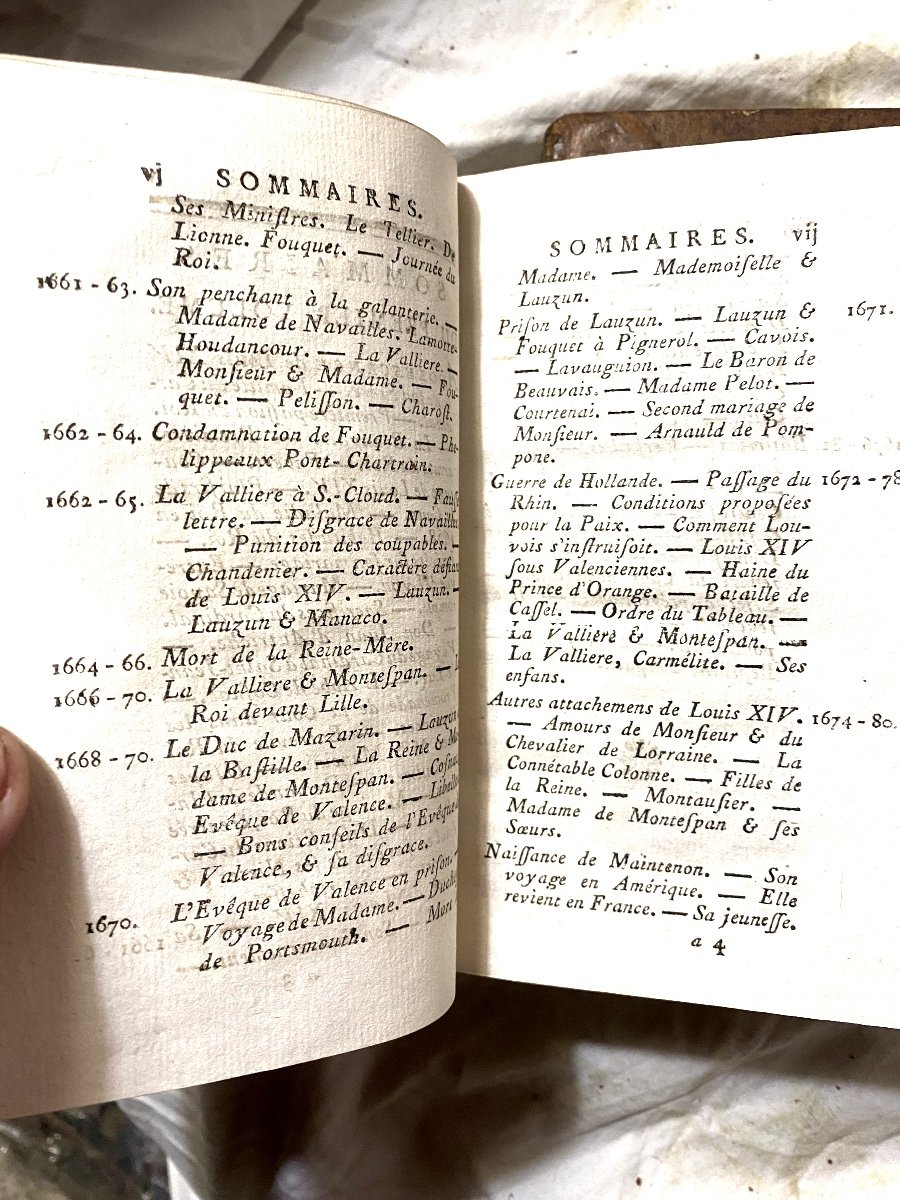 vj SOMMAIRES.
Ses Miniſtres. Le Tellier. De
Lionne. Fouquet. — Journée du
Roi.
1661 - 63. Son penchant à la galanterie. —
Madame de Navailles. Lamotte-
Houdancour. — La Valliere. —
Monſieur & Madame. — Fou-
quet. — Peliſſon. — Charoſt.
1662 - 64. Condamnation de Fouquet. — Phe-
lippeaux Pont-Chartrain.
1662 - 65. La Valliere à S.-Cloud. — Fauſſe
lettre. — Diſgrace de Navailles
— Punition des coupables. —
Chandenier. — Caractère défiant
de Louis XIV. — Lauzun. —
Lauzun & Manaco.
1664 - 66. Mort de la Reine-Mère.
1666 - 70. La Valliere & Monteſpan. —
Roi devant Lille.
1668 - 70. Le Duc de Mazarin. — Lauzun
la Baſtille. — La Reine & Ma-
dame de Monteſpan. —
Evêque de Valence. — Libelle
— Bons conſeils de l'Evêque
Valence, & ſa diſgrace.
1670. L'Evêque de Valence en priſon. —
Voyage de Madame. — Duch.
de Portsmouth. — Mort
SOMMAIRES. vij
Madame. — Mademoiſelle &
Lauzun.
Priſon de Lauzun. — Lauzun & 1671.
Fouquet à Pignerol. — Cavois.
— Lavauguion. — Le Baron de
Beauvais. — Madame Pelot. —
Courtenai. — Second mariage de
Monſieur. — Arnauld de Pom-
pone.
Guerre de Hollande. — Paſſage du 1672 - 78
Rhin. — Conditions propoſées
pour la Paix. — Comment Lou-
vois s'inſtruiſoit. — Louis XIV
ſous Valenciennes. — Haine du
Prince d'Orange. — Bataille de
Caſſel. — Ordre du Tableau. —
La Vallière & Monteſpan. —
La Valliere, Carmélite. — Ses
enfans.
Autres attachemens de Louis XIV. 1674 - 80.
— Amours de Monſieur & du
Chevalier de Lorraine. — La
Connétable Colonne. — Filles de
la Reine. — Montauſier. —
Madame de Monteſpan & ſes
Sœurs.
Naiſſance de Maintenon. — Son
voyage en Amérique. — Elle
revient en France. — Sa jeuneſſe.
a 4